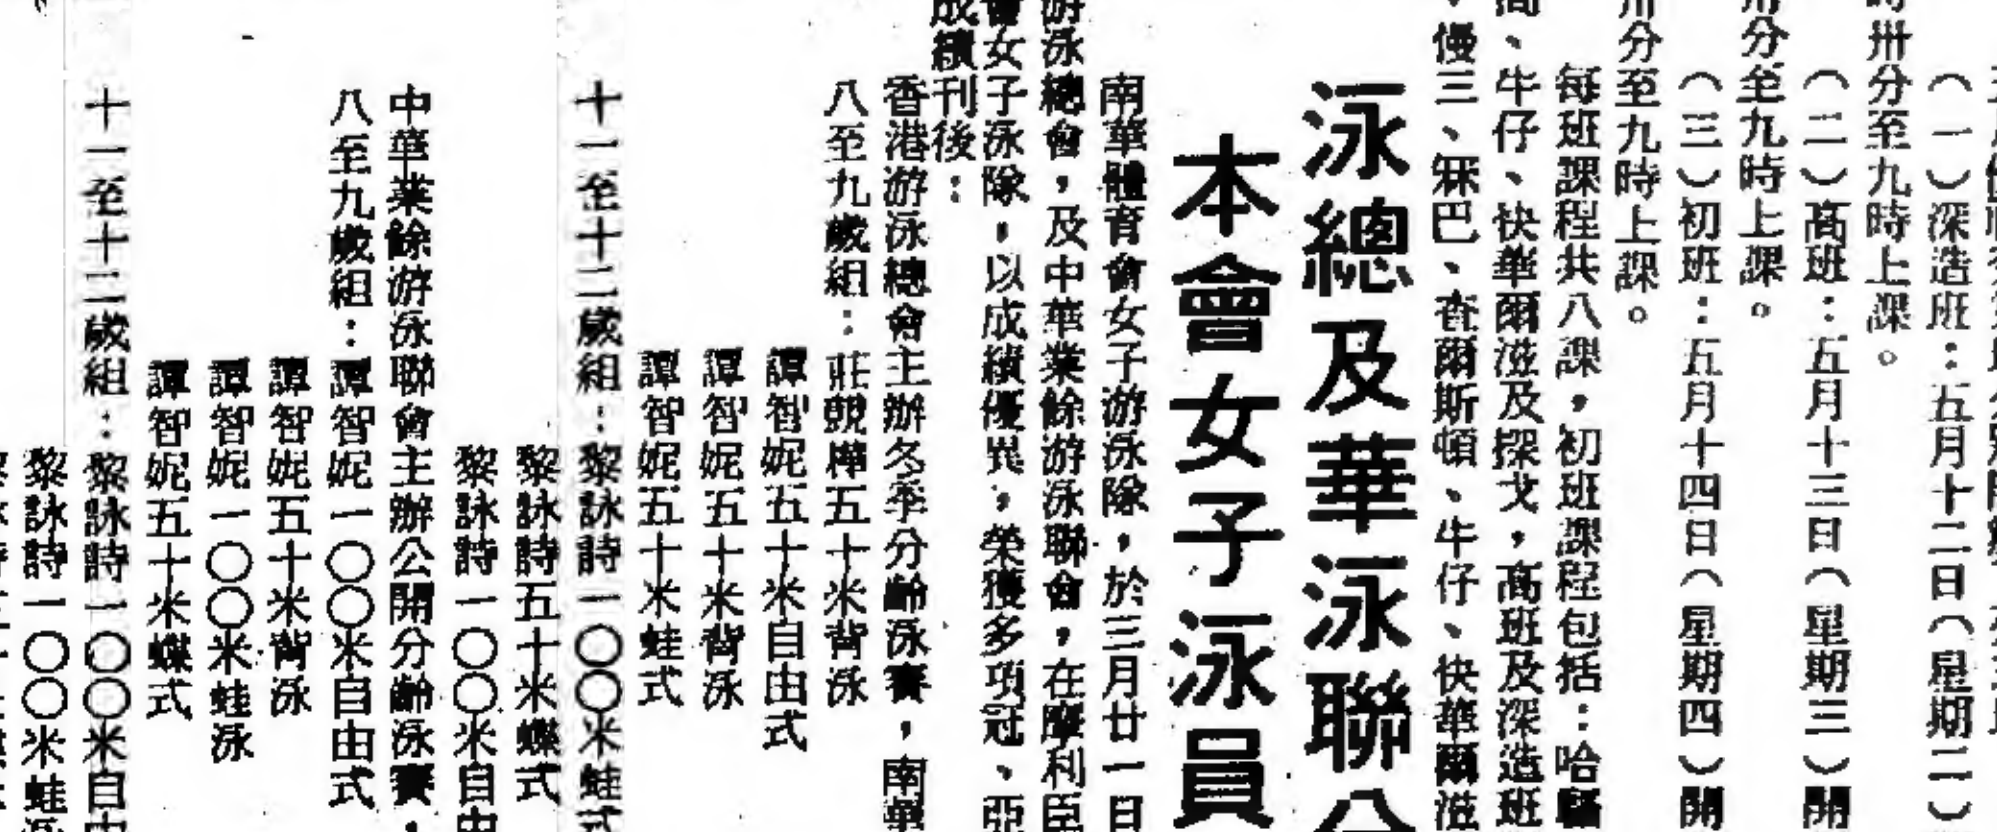 （一）深造班：五月十二日（星期二）
時卅分至九時上課。
（二）高班：五月十三日（星期三）開
卅分至九時上課。
（三）初班：五月十四日（星期四）開
卅分至九時上課。
每班課程共八課，初班課程包括：哈
、牛仔、快華爾滋及探戈，高班及深造班
、慢三、冧巴、查爾斯頓、牛仔、快華爾滋
泳總及華泳聯分
本會女子泳員
南華體育會女子游泳隊，於三月廿一日
游泳總會，及中華業餘游泳聯會，在摩利臣
會女子泳隊，以成績優異，榮獲多項冠、亞
成績刊後：
香港游泳總會主辦冬季分齡泳賽，南華
八至九歲組：莊競樺五十米背泳
譚智妮五十米自由式
譚智妮五十米背泳
譚智妮五十米蛙式
十一至十二歲組：黎詠詩一〇〇米蛙式
黎詠詩五十米蝶式
黎詠詩一〇〇米自由
中華業餘游泳聯會主辦公開分齡泳賽，
八至九歲組：譚智妮一〇〇米自由式
譚智妮五十米背泳
譚智妮一〇〇米蛙泳
譚智妮五十米蝶式
十一至十二歲組：黎詠詩一〇〇米自由
黎詠詩一〇〇米蛙泳